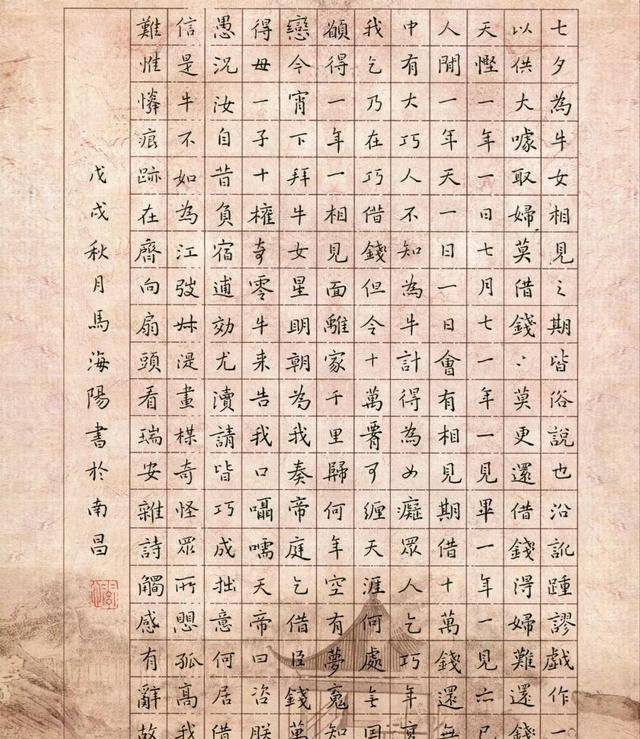 七夕為牛女相見之期皆俗說也沿訛踵謬戲作一
以供大噱取婦莫借錢〻莫更還借錢得婦難還錢一
天慳一年一日七月七一年一見畢一年一見六已
人間一年天一日一日會有相見期借十萬錢還無
中有大巧人不知為牛計得為癡眾人乞巧年
我乞乃在巧借錢但令十萬可纏天涯何處無
願得一年一相見面離家千里歸何年空有夢魂知
戀今宵下拜牛女星明朝為我奏帝庭乞借臣錢萬
得毋一子十權奇零牛來告我口囁嚅天帝曰咨朕
愚況汝自昔負宿逋効尤瀆請皆巧成拙意何居借
信是牛不如為江弢妹湜畫楳奇怪眾所孤高我
難惟憐痕跡在向扇頭看瑞安雜詩觸感有辭故
戊戌秋月馬海陽書於南昌